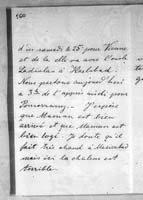 160
d'un samedi le 25 pour Vienne
et de là elle va avec l'oncle
Ladislas à Karlsbad.
Nous partons aujourd'hui
à 3h. de l'après midi pour
Pomerzany. J'espère
que Maman est bien
arrivé et que Maman est
bien logé. Je doute qu'il
fait très chaud à Marienbad
mais ici la chaleur est
terrible.